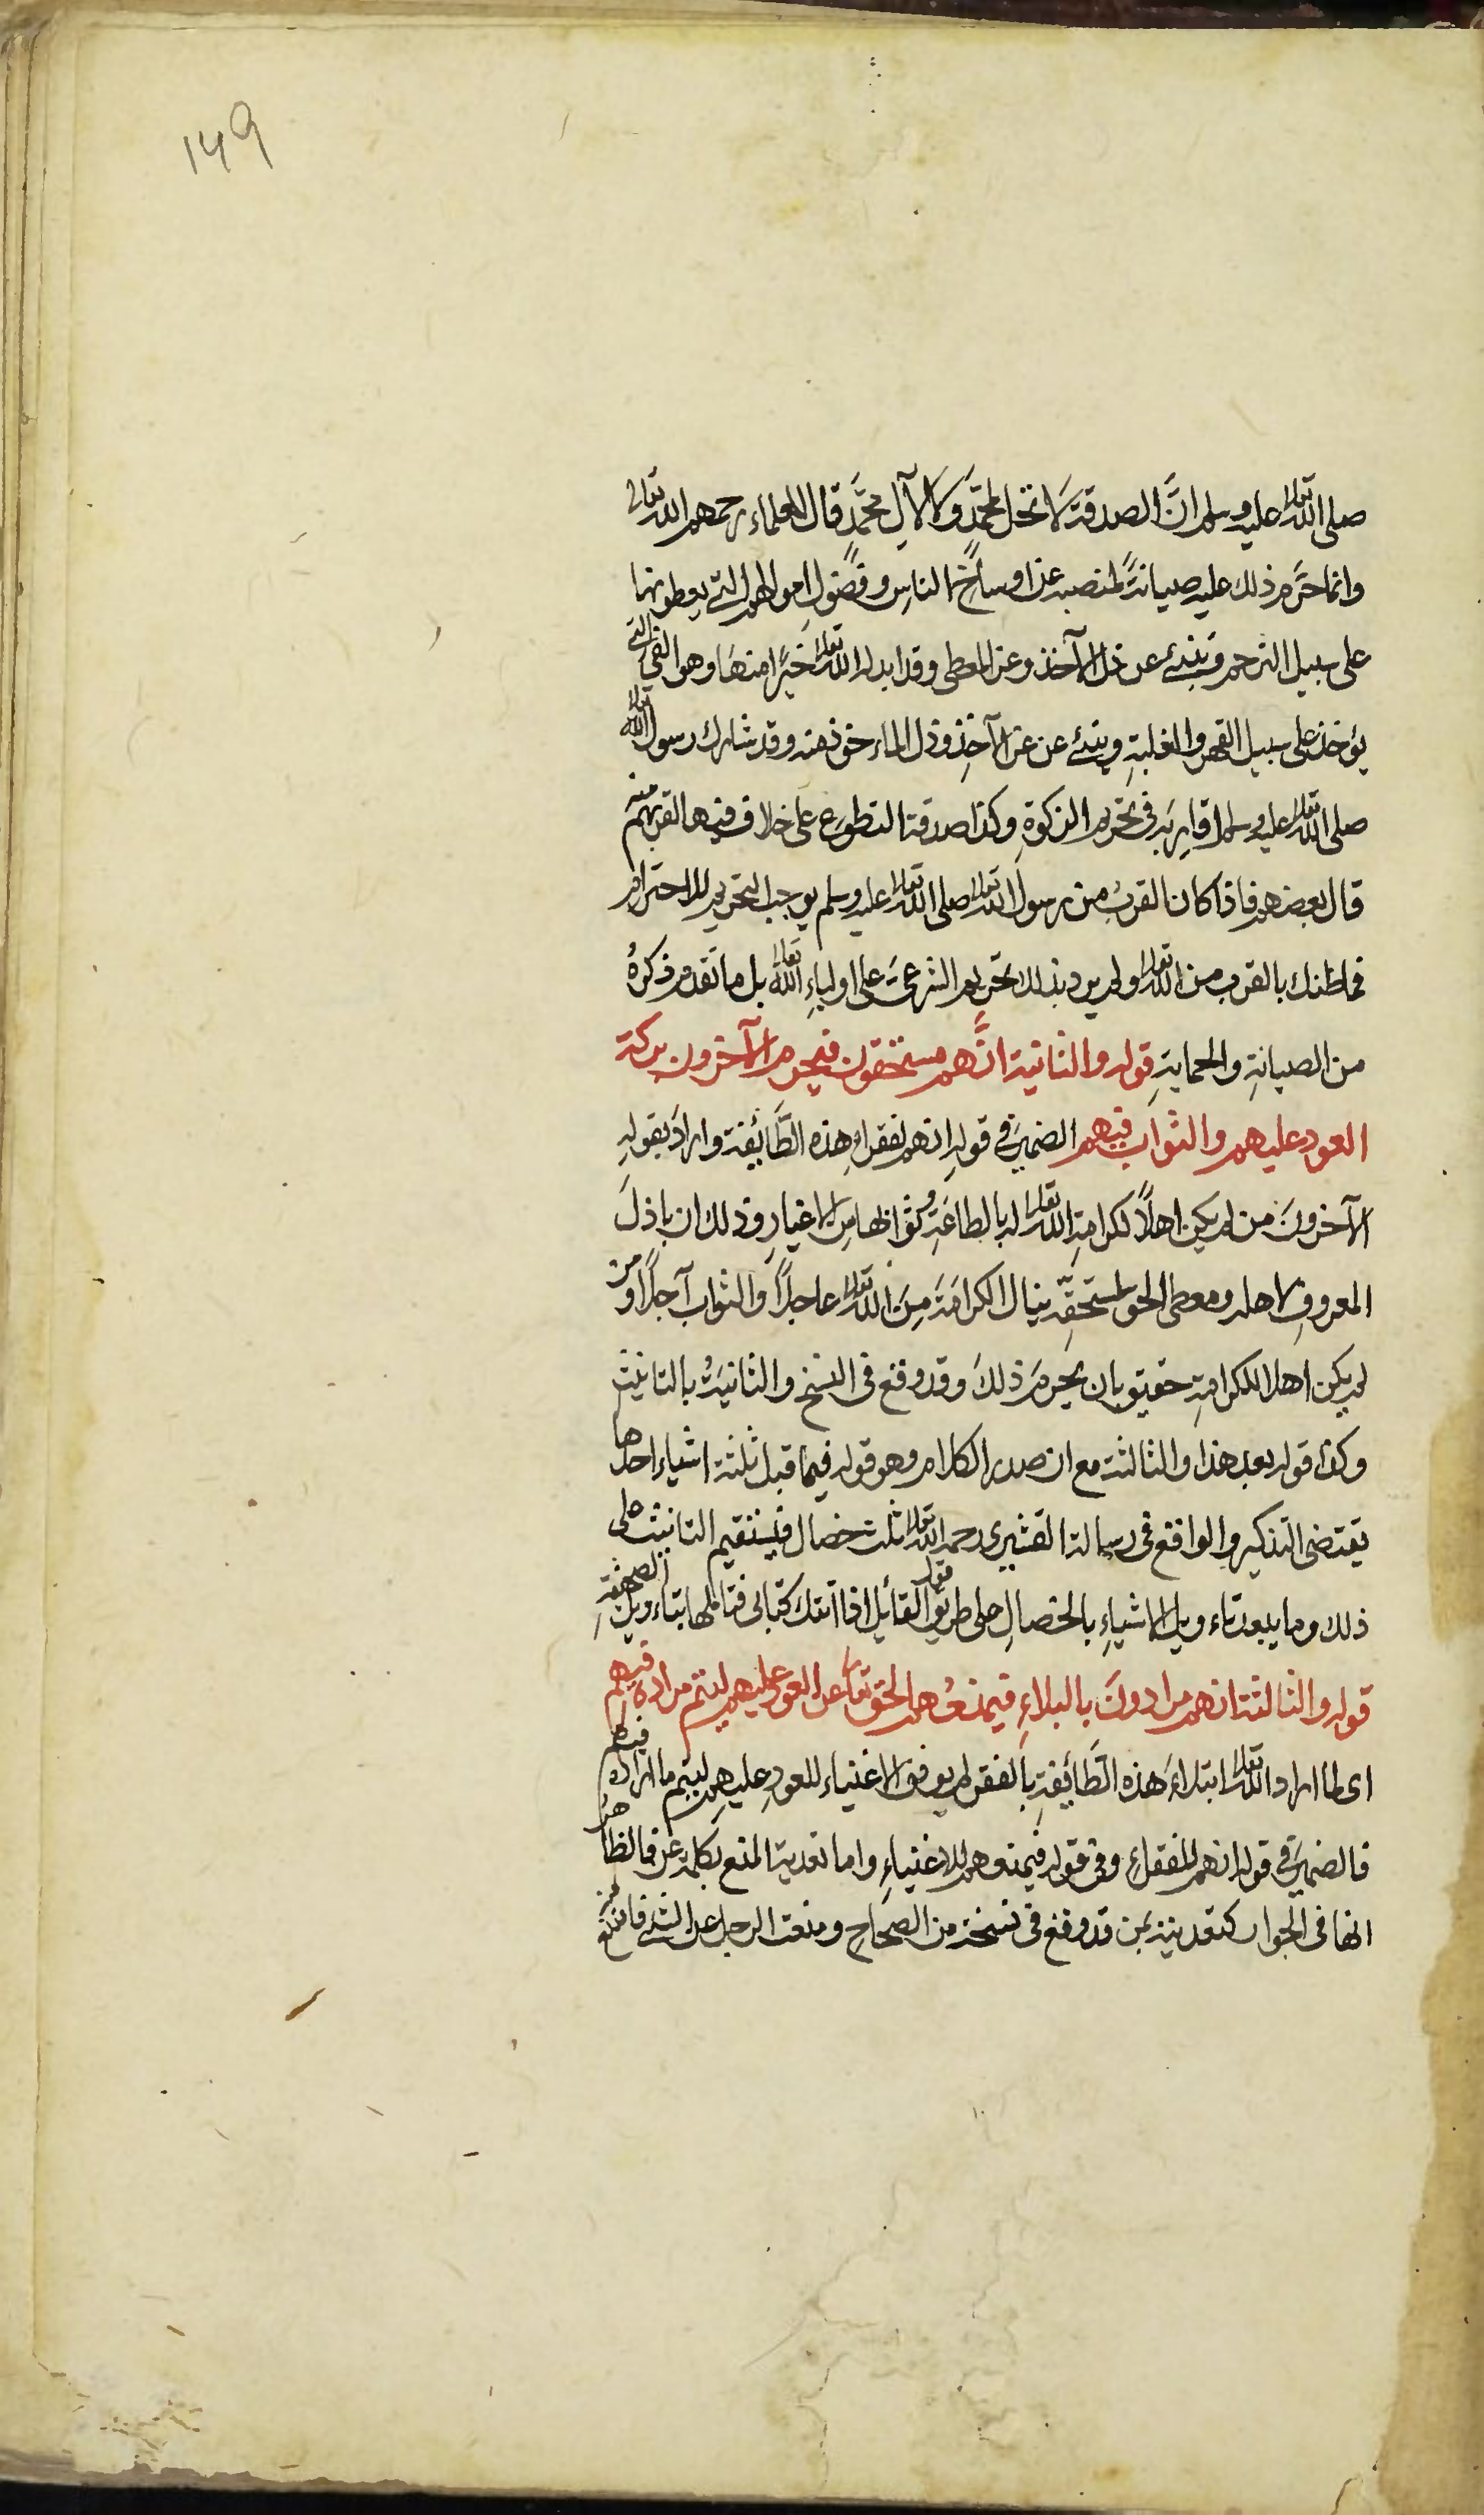 ۱۴۹
صلى الله تعالى عليه وسلم انَّ الصدقة لا تحل لمحمَّدٍ ولا لآلِ محمَّدٍ قال العلماء رحمهم الله تعالى
وانما حرّم ذلك عليه صيانةً لمنصبه عن اوساخ الناسِ وفضولِ اموالهم التي يعطونها
على سبيل الترحم وينبئ عن ذل الآخذ وعز المعطى وقد ابدله الله تعالى خيرًا منها وهو الفئ التى
يؤخذ على سبيل القهر والغلبةِ وينبئ عن عز الآخذِ وذل الماءخوذ منه وقد شارك رسول الله تعالى
صلى الله تعالى عليه وسلم اقاربه فى تحريم الزكوةِ وكذا صدقة التطوع على خلاف فيها لقربهم منه
قال بعضهم فاذا كان القربُ من رسول الله تعالى صلى الله تعالى عليه وسلم يوجب التحريم للاحترام
فما ظنك بالقرب من الله تعالى ولم يرد بذلك تحريم الشرعىّ على اولياءِ الله تعالى بل ما تقدم ذكرهُ
من الصيانةِ والحمايةِ قوله والثانية انَّهم مستحقون فيحرم الآخرون بركة
العود عليهم والثواب فيهم الضمير فى قولهِ انهم لفقراءِ هذه الطَّائفة واراد بقولهِ
الآخرونَ من لم يكن اهلاً لكرامةِ الله تعالى له بالطاعَةِ وثوابها من الاغيارِ وذلك ان باذلَ
المعروفِ لاهله ومعطى الحق لمستحقّه ينال الكرامَةَ مِنَ الله تعالى عاجلاً والثواب آجلاً ومن
لم يكن اهلا للكرامةِ حقيق بان يحرم ذلكَ وقد وقع فى النسخ والثانيةُ بالتانيث
وكذا قوله بعد هذا والثالثة مع ان صدر الكلام وهو قوله فيما قبل ثلثة اشياء احدها
يقتضى التذكير والواقع فى رسالة القشيرى رحمه الله تعالى ثلث خصال فيستقيم التانيث على
ذلك وما يبعد تاءويل الاشياءِ بالخصالِ على طريق قول القائل اذا اتتك كتابى فتاملها بتاءويل الصحيفةِ
قوله والثالثة انهم مرادونَ بالبلاءِ فيمنعُهم الحق تعالى عن العود عليهم ليتم مراده فيهم
اى لما اراد الله تعالى ابتلاءَ هذه الطَّائفةِ بالفقر لم يوفق الاغنياء للعودِ عليهم ليتم ما اراده فيهم
فالضمير فى قوله انهم للفقراءِ وفى قوله فيمنعهم للاغنياءِ واما تعدية المنع بكلمة عن فالظاهر
انها فى الجواز كتعديته بمن قد وقع فى نسخة من الصحاحِ ومنعت الرجل عن الشئ فامتنع منه